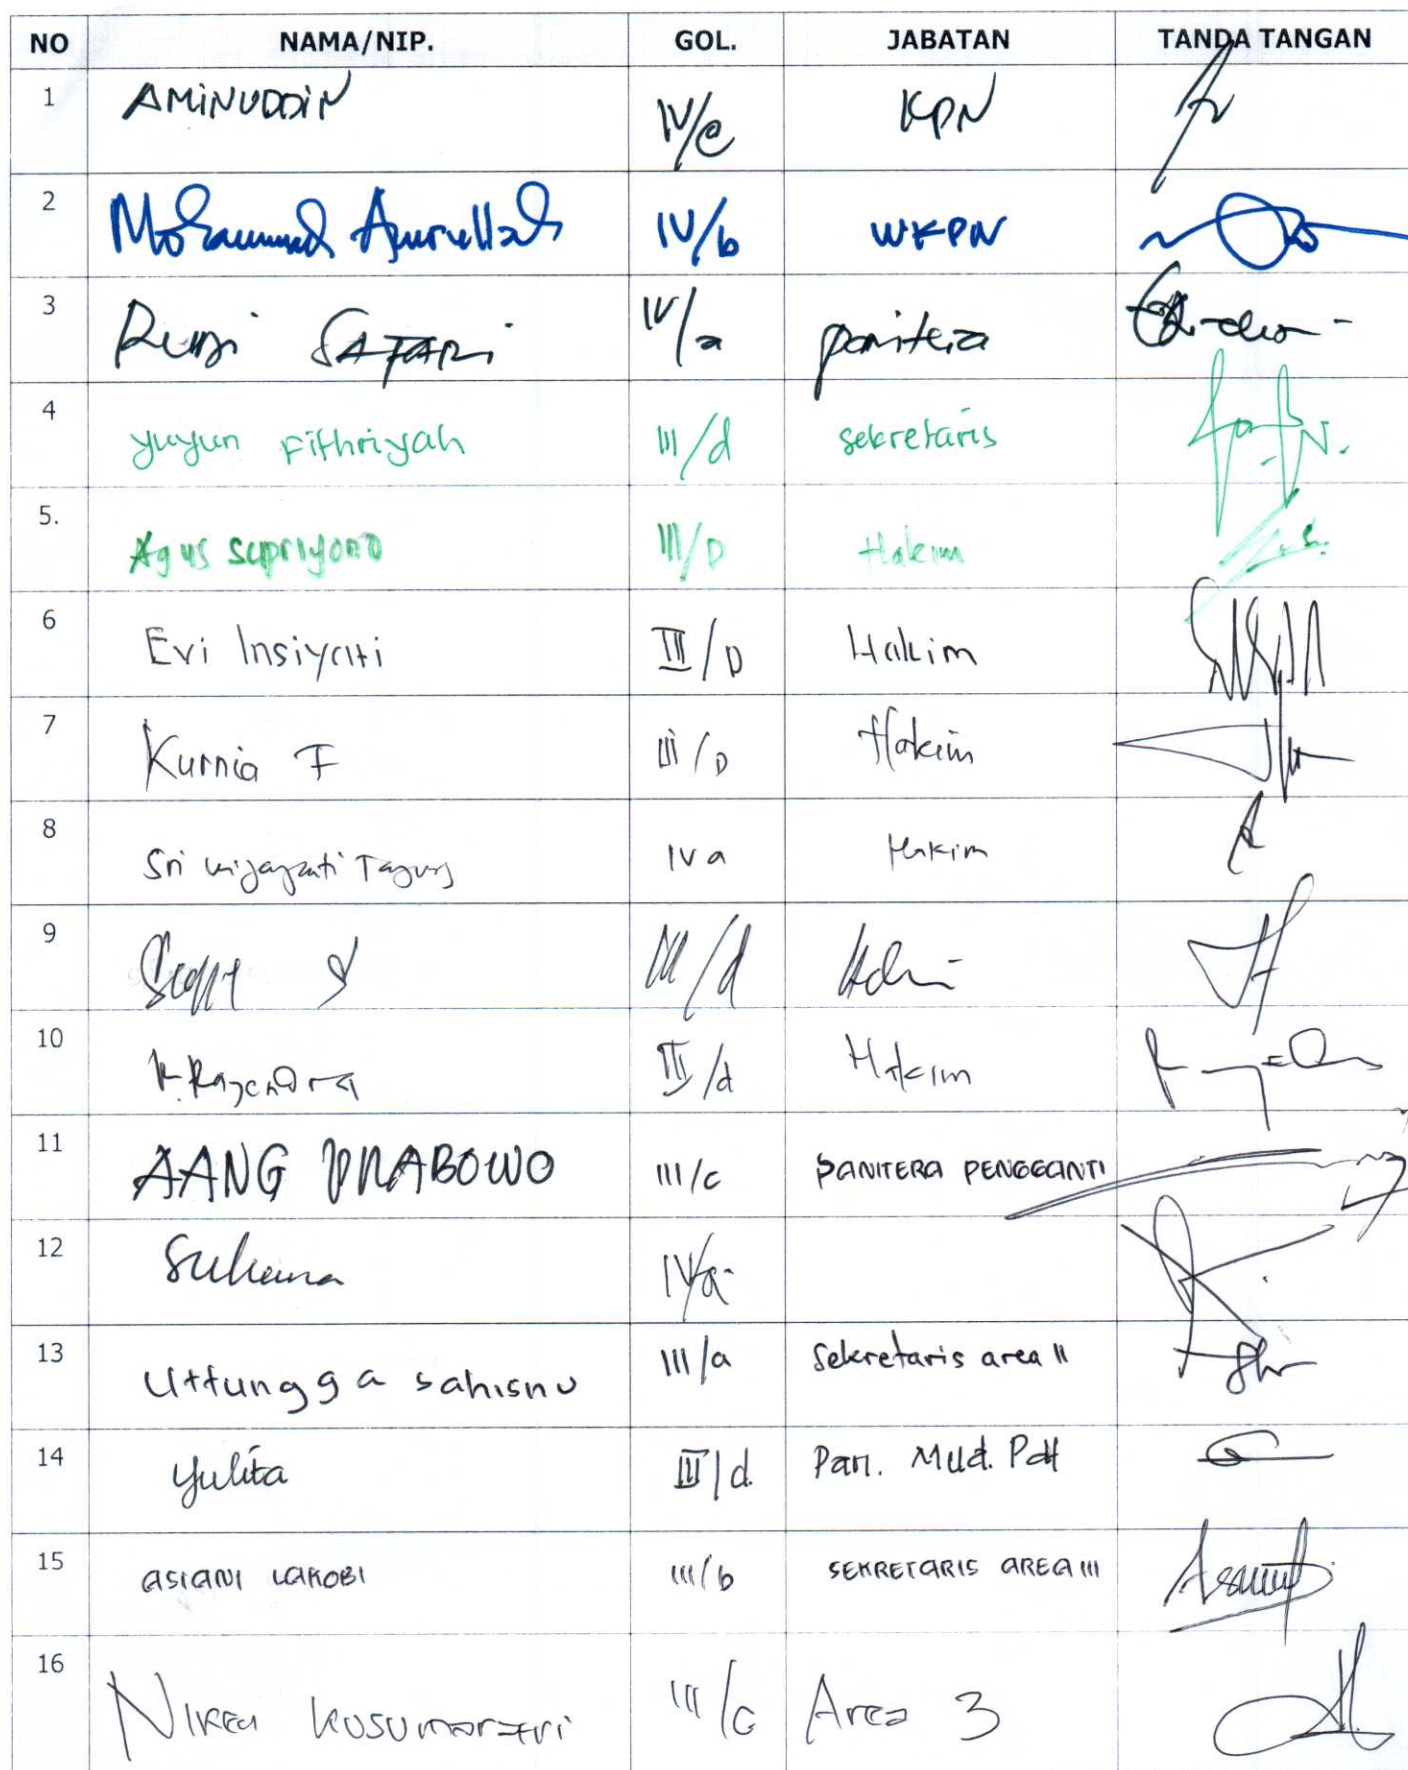 NO NAMA/NIP. GOL. JABATAN TANDA TANGAN
1 AMINUDDIN IV/c KPN
2 Mohammad Amrullah IV/b WKPN
3 Rumi SAFARI IV/a panitera
4 yuyun Fithriyah III/d sekretaris
5. Agus Supriyono III/D Hakim
6 Evi Insiyati III/D Hakim
7 Kurnia F III/D Hakim
8 Sri wijayanti Tanjung IV a Hakim
9 III/d
10 Rajendra III/d Hakim
11 AANG PRABOWO III/c PANITERA PENGGANTI
12 Suhana IV/a
13 Uttungga sahisnu III/a Sekretaris area II
14 Yulita III/d. Pan. Mud. Pdt
15 ASIANI LAKOBI III/b SEKRETARIS AREA III
16 III/c Area 3